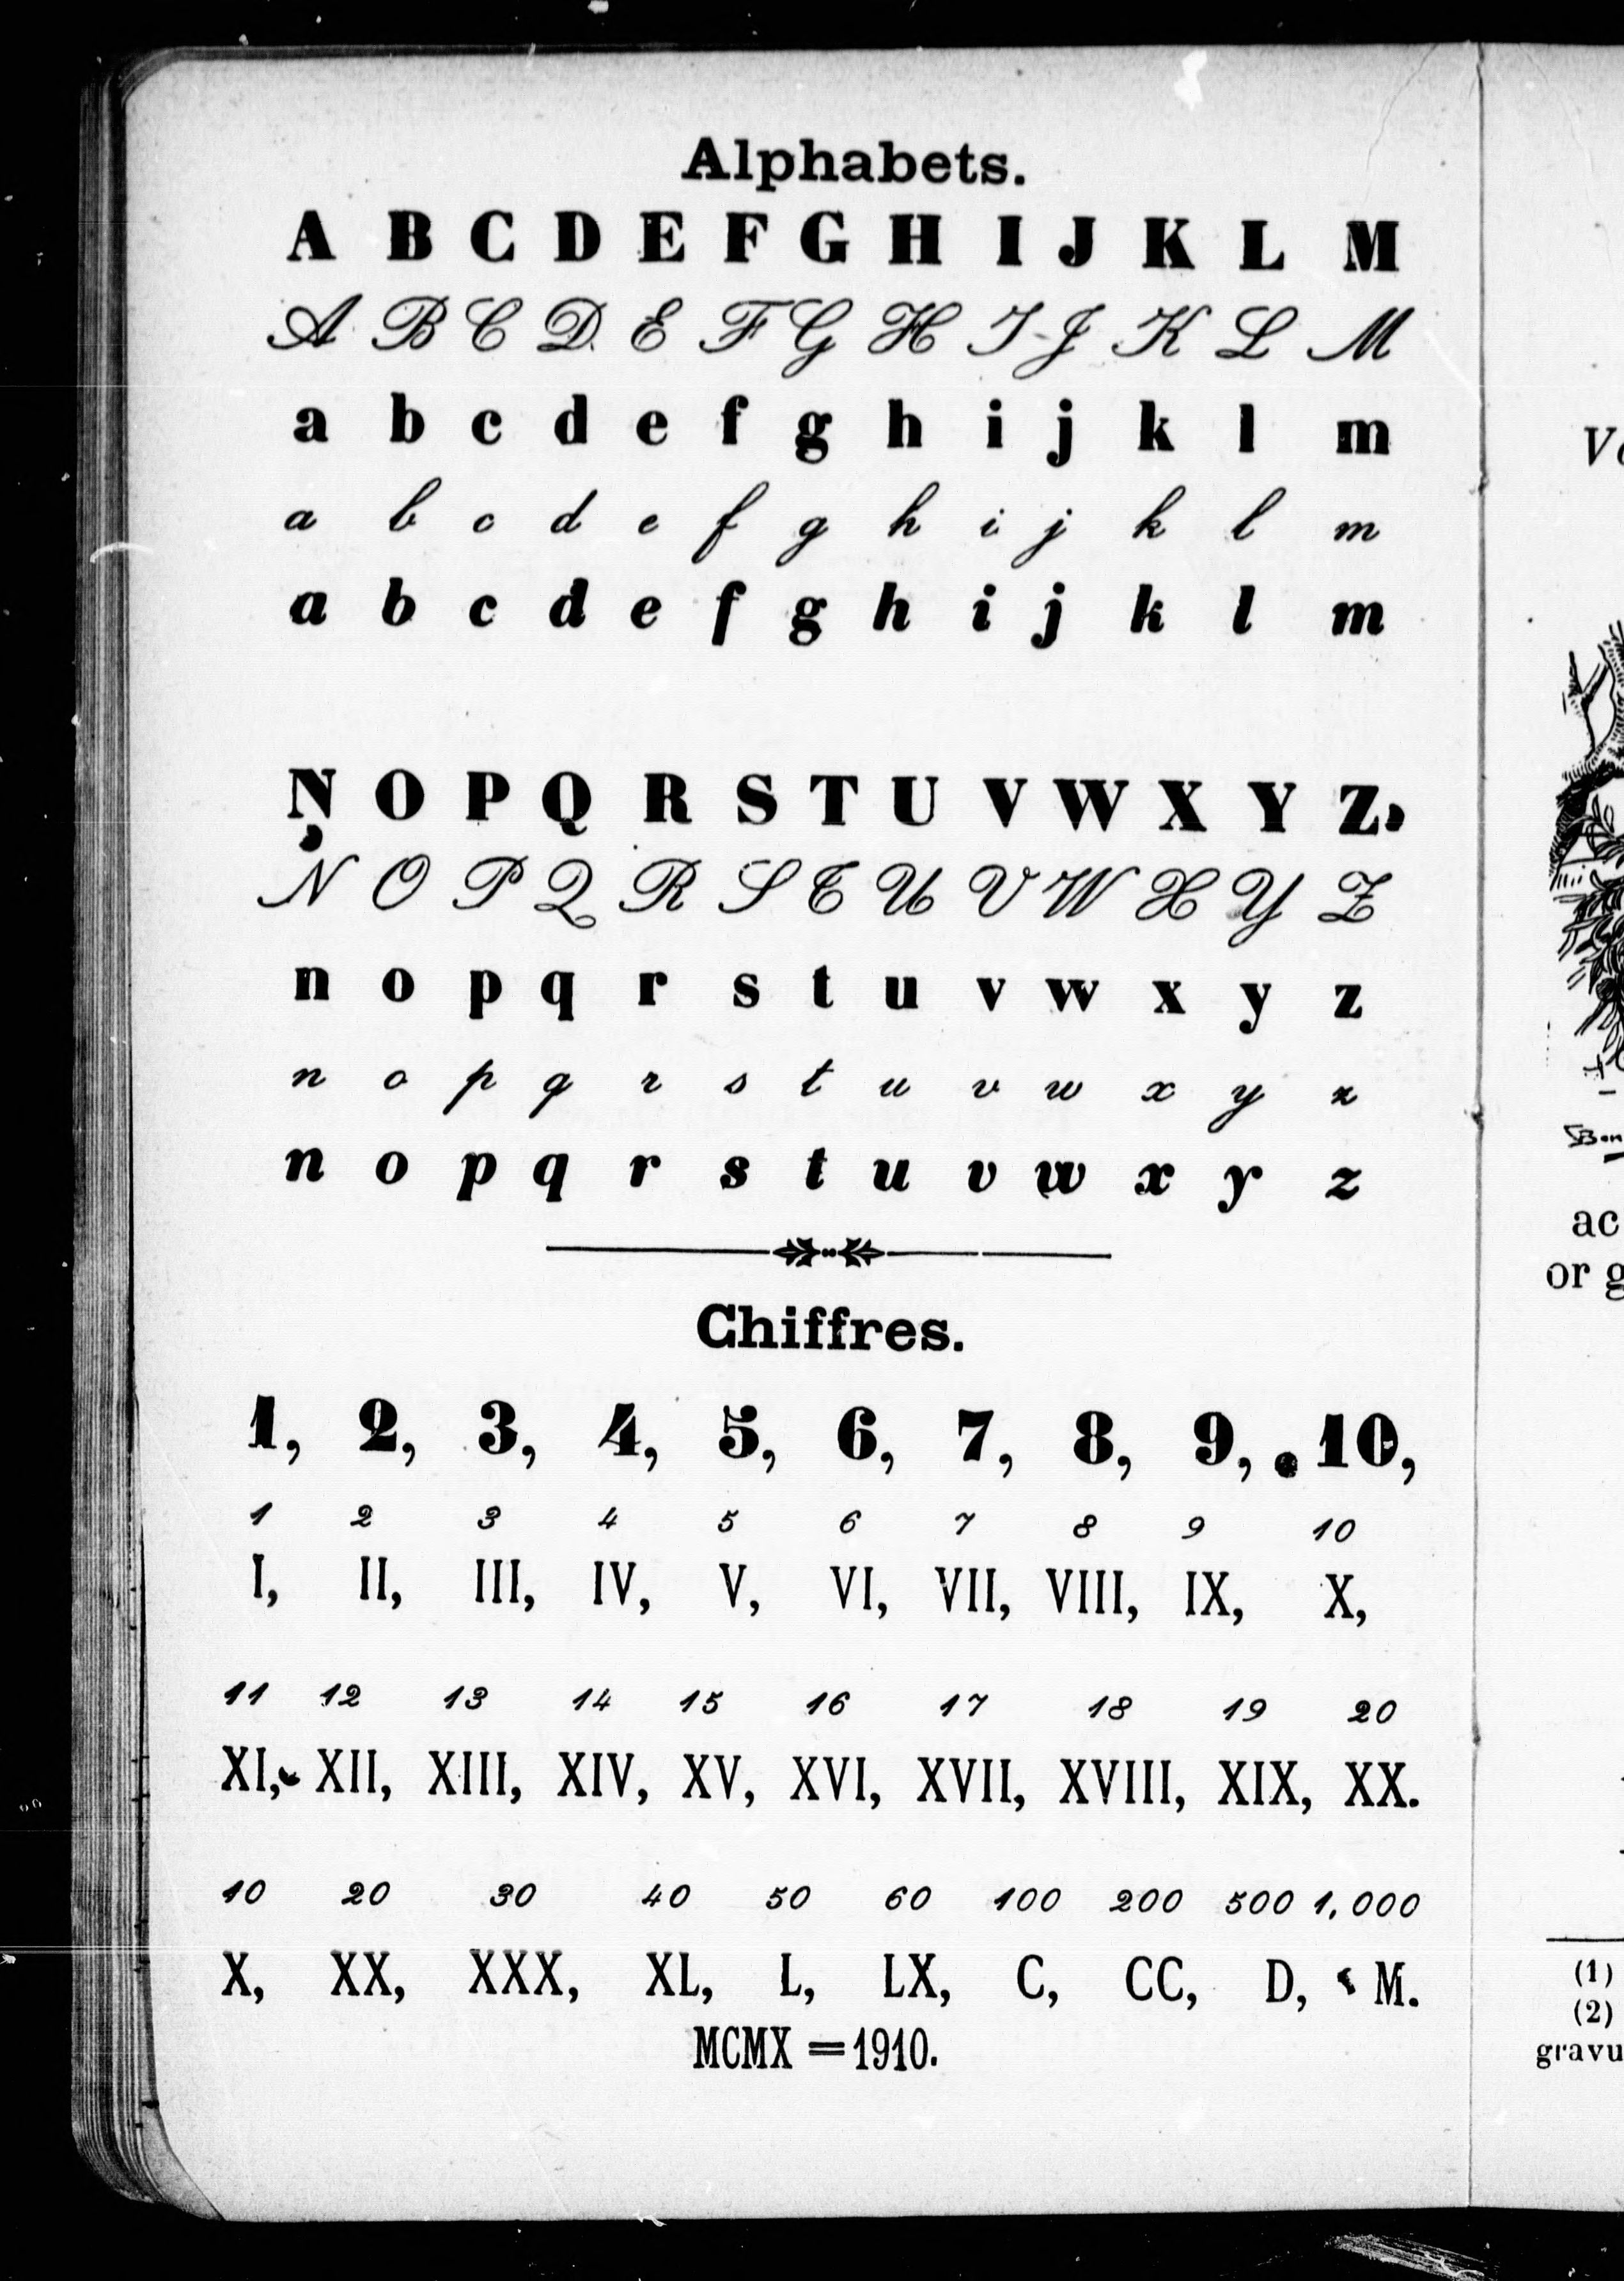 Alphabets.
A B C D E F G H I J K L M
A B C D E F G H I J K L M
a b c d e f g h i j k l m
a b c d e f g h i j k l m
a b c d e f g h i j k l m
N O P Q R S T U V W X Y Z
N O P Q R S T U V W X Y Z
n o p q r s t u v w x y z
n o p q r s t u v w x y z
n o p q r s t u v w x y z
Chiffres.
1, 2, 3, 4, 5, 6, 7, 8, 9, 10,
1 2 3 4 5 6 7 8 9 10
I, II, III, IV, V, VI, VII, VIII, IX, X,
11 12 13 14 15 16 17 18 19 20
XI, XII, XIII, XIV, XV, XVI, XVII, XVIII, XIX, XX.
10 20 30 40 50 60 100 200 500 1,000
X, XX, XXX, XL, L, LX, C, CC, D, M.
MCMX = 1910.
ac
or g
(1)
(2)
gravu